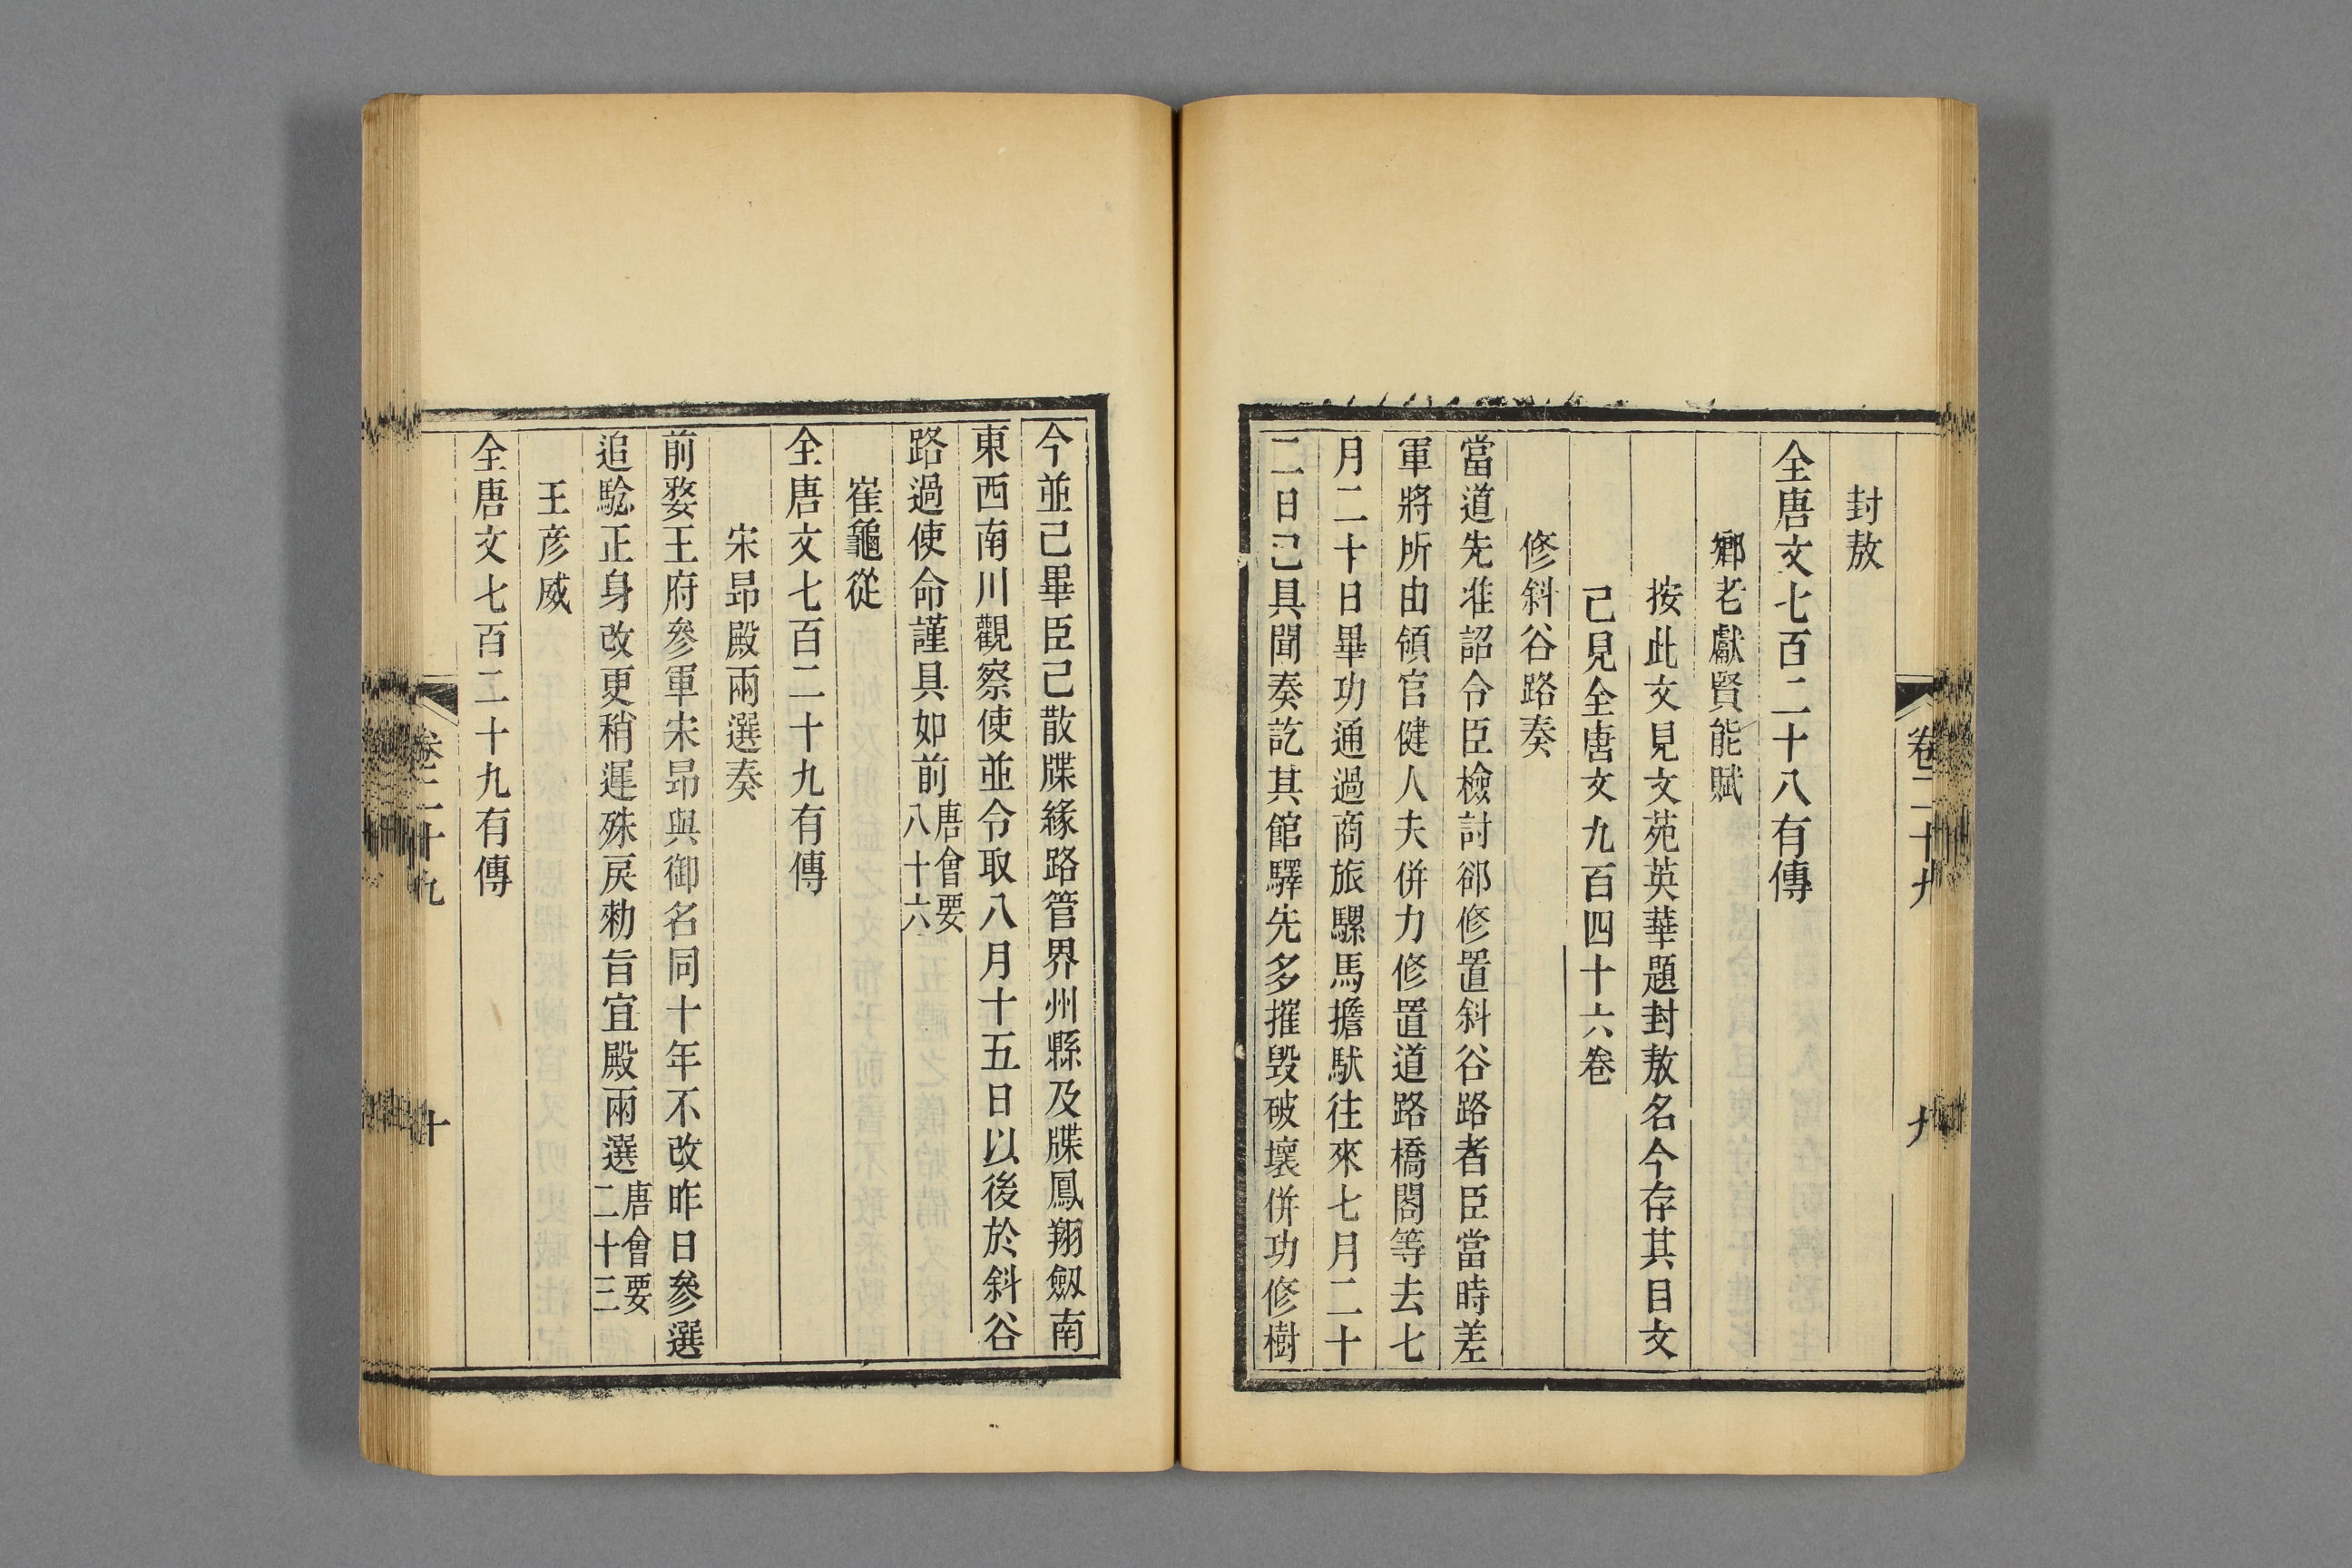 卷二十九
九
封敖
全唐文七百二十八有傳
鄉老獻賢能賦
按此文見文苑英華題封敖名今存其目文
已見全唐文九百四十六卷
修斜谷路奏
當道先准詔令臣檢討郤修置斜谷路者臣當時差
軍將所由領官健人夫併力修置道路橋閣等去七
月二十日畢功通過商旅騾馬擔馱往來七月二十
二日已具聞奏訖其館驛先多摧毀破壞併功修樹
今並已畢臣已散牒緣路管界州縣及牒鳳翔劔南
東西南川觀察使並令取八月十五日以後於斜谷
路過使命謹具如前唐會要八十六
崔龜從
全唐文七百二十九有傳
宋昻殿兩選奏
前婺王府參軍宋昻與御名同十年不改昨日參選
追驗正身改更稍遲殊戾勑旨宜殿兩選唐會要二十三
王彦威
全唐文七百二十九有傳
卷二十九
十